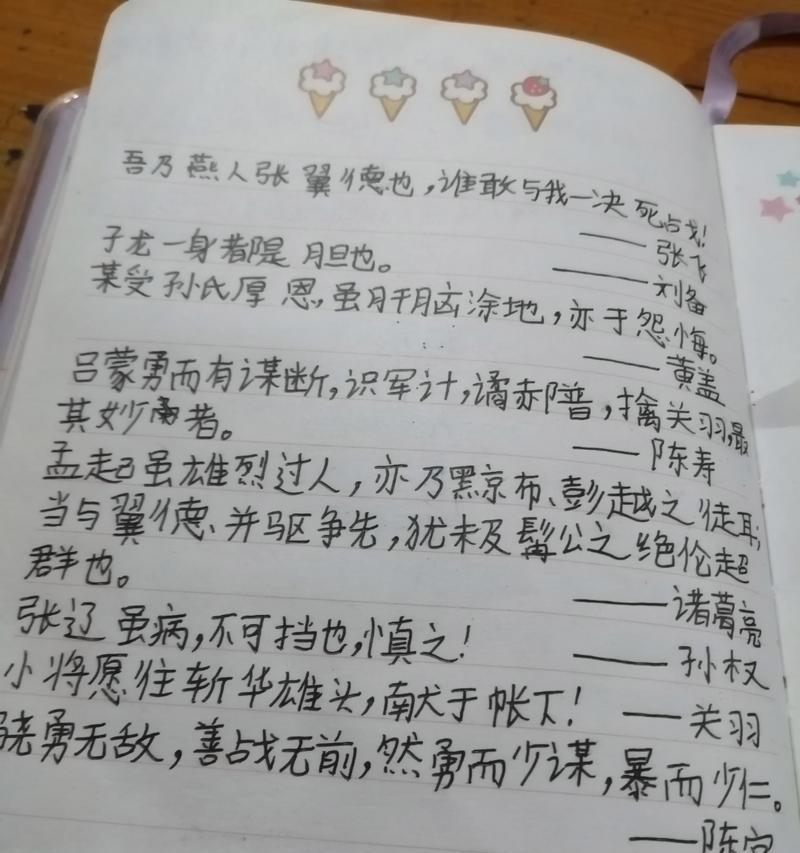 吾乃燕人张翼德也,谁敢与我一决死战!
——张飞
子龙一身都是胆也。
——刘备
某受孙氏厚恩,虽肝脑涂地,亦于怨悔。
——黄盖
吕蒙勇而有谋断,识军计,谲郝普,擒关羽,最
其妙者。
——陈寿
孟起虽雄烈过人,亦乃黥布、彭越之徒耳,
当与翼德、并驱争先,犹未及髯公之绝伦超
群也。
——诸葛亮
张辽虽病,不可挡也,慎之!
——孙权
小将愿往斩华雄头,献于帐下! ——关羽
骁勇无敌,善战无前,然勇而少谋,暴而少仁。
——陈宫